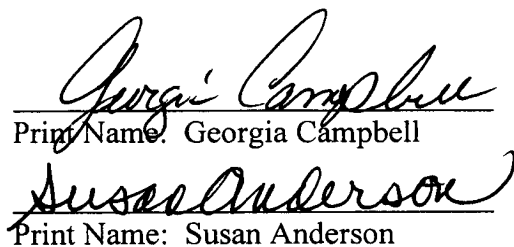 Georgia Campbell
Print Name: Georgia Campbell
Susan Anderson
Print Name: Susan Anderson